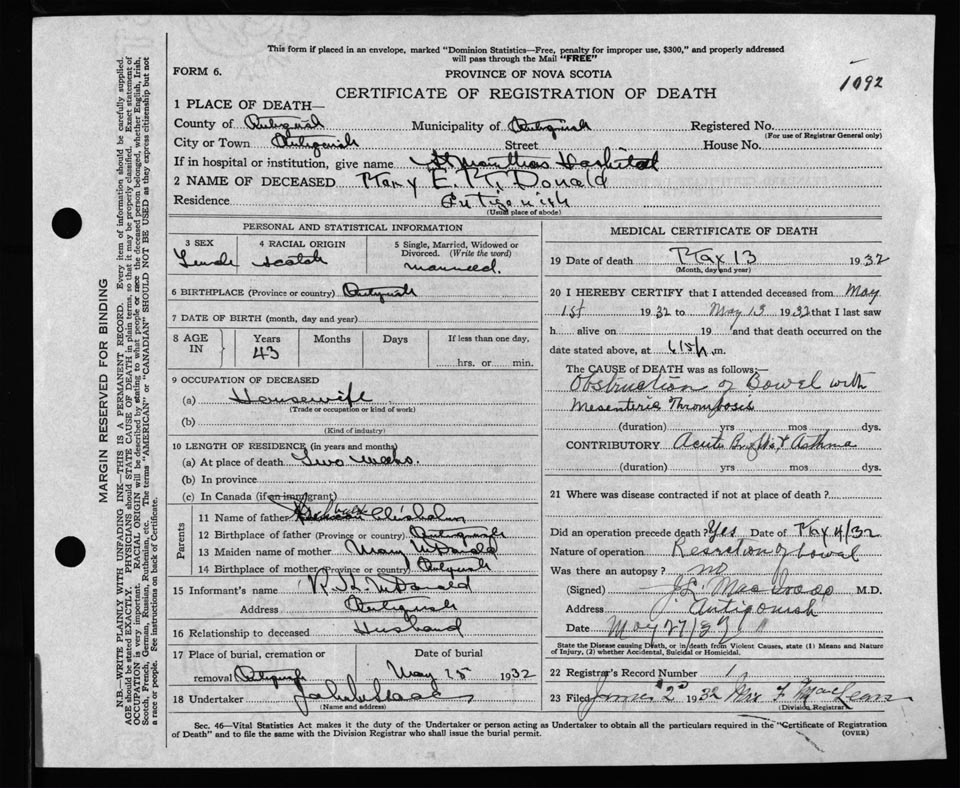 This form if placed in an envelope, marked "Dominion Statistics—Free, penalty for improper use, $300," and properly addressed
will pass through the Mail "FREE"
FORM 6.
PROVINCE OF NOVA SCOTIA
1092
CERTIFICATE OF REGISTRATION OF DEATH
1 PLACE OF DEATH—
County of Antigonish Municipality of Antigonish Registered No.
(For use of Registrar General only)
City or Town Antigonish Street House No.
If in hospital or institution, give name St Marthas Hospital
2 NAME OF DECEASED Mary E. McDonald
Residence Antigonish
(Usual place of abode)
PERSONAL AND STATISTICAL INFORMATION
3 SEX 4 RACIAL ORIGIN 5 Single, Married, Widowed or
Divorced. (Write the word)
Female Scotch married.
6 BIRTHPLACE (Province or country) Antigonish
7 DATE OF BIRTH (month, day and year)
8 AGE IN Years Months Days If less than one day,
43 hrs. or min.
9 OCCUPATION OF DECEASED
(a) Housewife
(Trade or occupation or kind of work)
(b)
(Kind of industry)
10 LENGTH OF RESIDENCE (in years and months)
(a) At place of death Two weeks.
(b) In province
(c) In Canada (if an immigrant)
Parents
11 Name of father Chisholm
12 Birthplace of father (Province or country) Antigonish
13 Maiden name of mother Mary McDonald
14 Birthplace of mother (Province or country) Antigonish
15 Informant's name McDonald
Address Antigonish
16 Relationship to deceased Husband
17 Place of burial, cremation or Date of burial
removal Antigonish May 15 1932
18 Undertaker
(Name and address)
MEDICAL CERTIFICATE OF DEATH
19 Date of death May 13 1932
(Month, day and year)
20 I HEREBY CERTIFY that I attended deceased from May
1st 1932 to May 13 1932 that I last saw
h alive on 19 and that death occurred on
date stated above, at m.
The CAUSE OF DEATH was as follows:—
Obstruction of Bowel with
Mesenteric Thrombosis
(duration) yrs mos. dys.
CONTRIBUTORY Acute Brights & Asthma
(duration) yrs mos. dys.
21 Where was disease contracted if not at place of death?
Did an operation precede death? Yes Date of May 4/32
Nature of operation Resection of bowel
Was there an autopsy? no
(Signed) J.L. M.D.
Address Antigonish
Date May 27/32
State the Disease causing Death, or in death from Violent Causes, state (1) Means and Nature
of Injury, (2) whether Accidental, Suicidal or Homicidal.
22 Registrar's Record Number 1
23 Filed June 2nd 1932 Mrs F. MacLean
(Division Registrar)
Sec. 46—Vital Statistics Act makes it the duty of the Undertaker or person acting as Undertaker to obtain all the particulars required in the "Certificate of Registration
of Death" and to file the same with the Division Registrar who shall issue the burial permit.
(OVER)
MARGIN RESERVED FOR BINDING
N.B.—WRITE PLAINLY WITH UNFADING INK—THIS IS A PERMANENT RECORD. Every item of information should be carefully supplied.
AGE should be stated EXACTLY. PHYSICIANS should STATE CAUSE OF DEATH in plain terms, so that it may be properly classified. Exact statement of
OCCUPATION is very important. RACIAL ORIGIN will be described by stating to what people or race the deceased person belonged, whether English, Irish,
Scotch, French, German, Russian, Ruthenian, etc. The terms "AMERICAN" or "CANADIAN" SHOULD NOT BE USED as they express citizenship but not
a race or people. See instructions on back of Certificate.